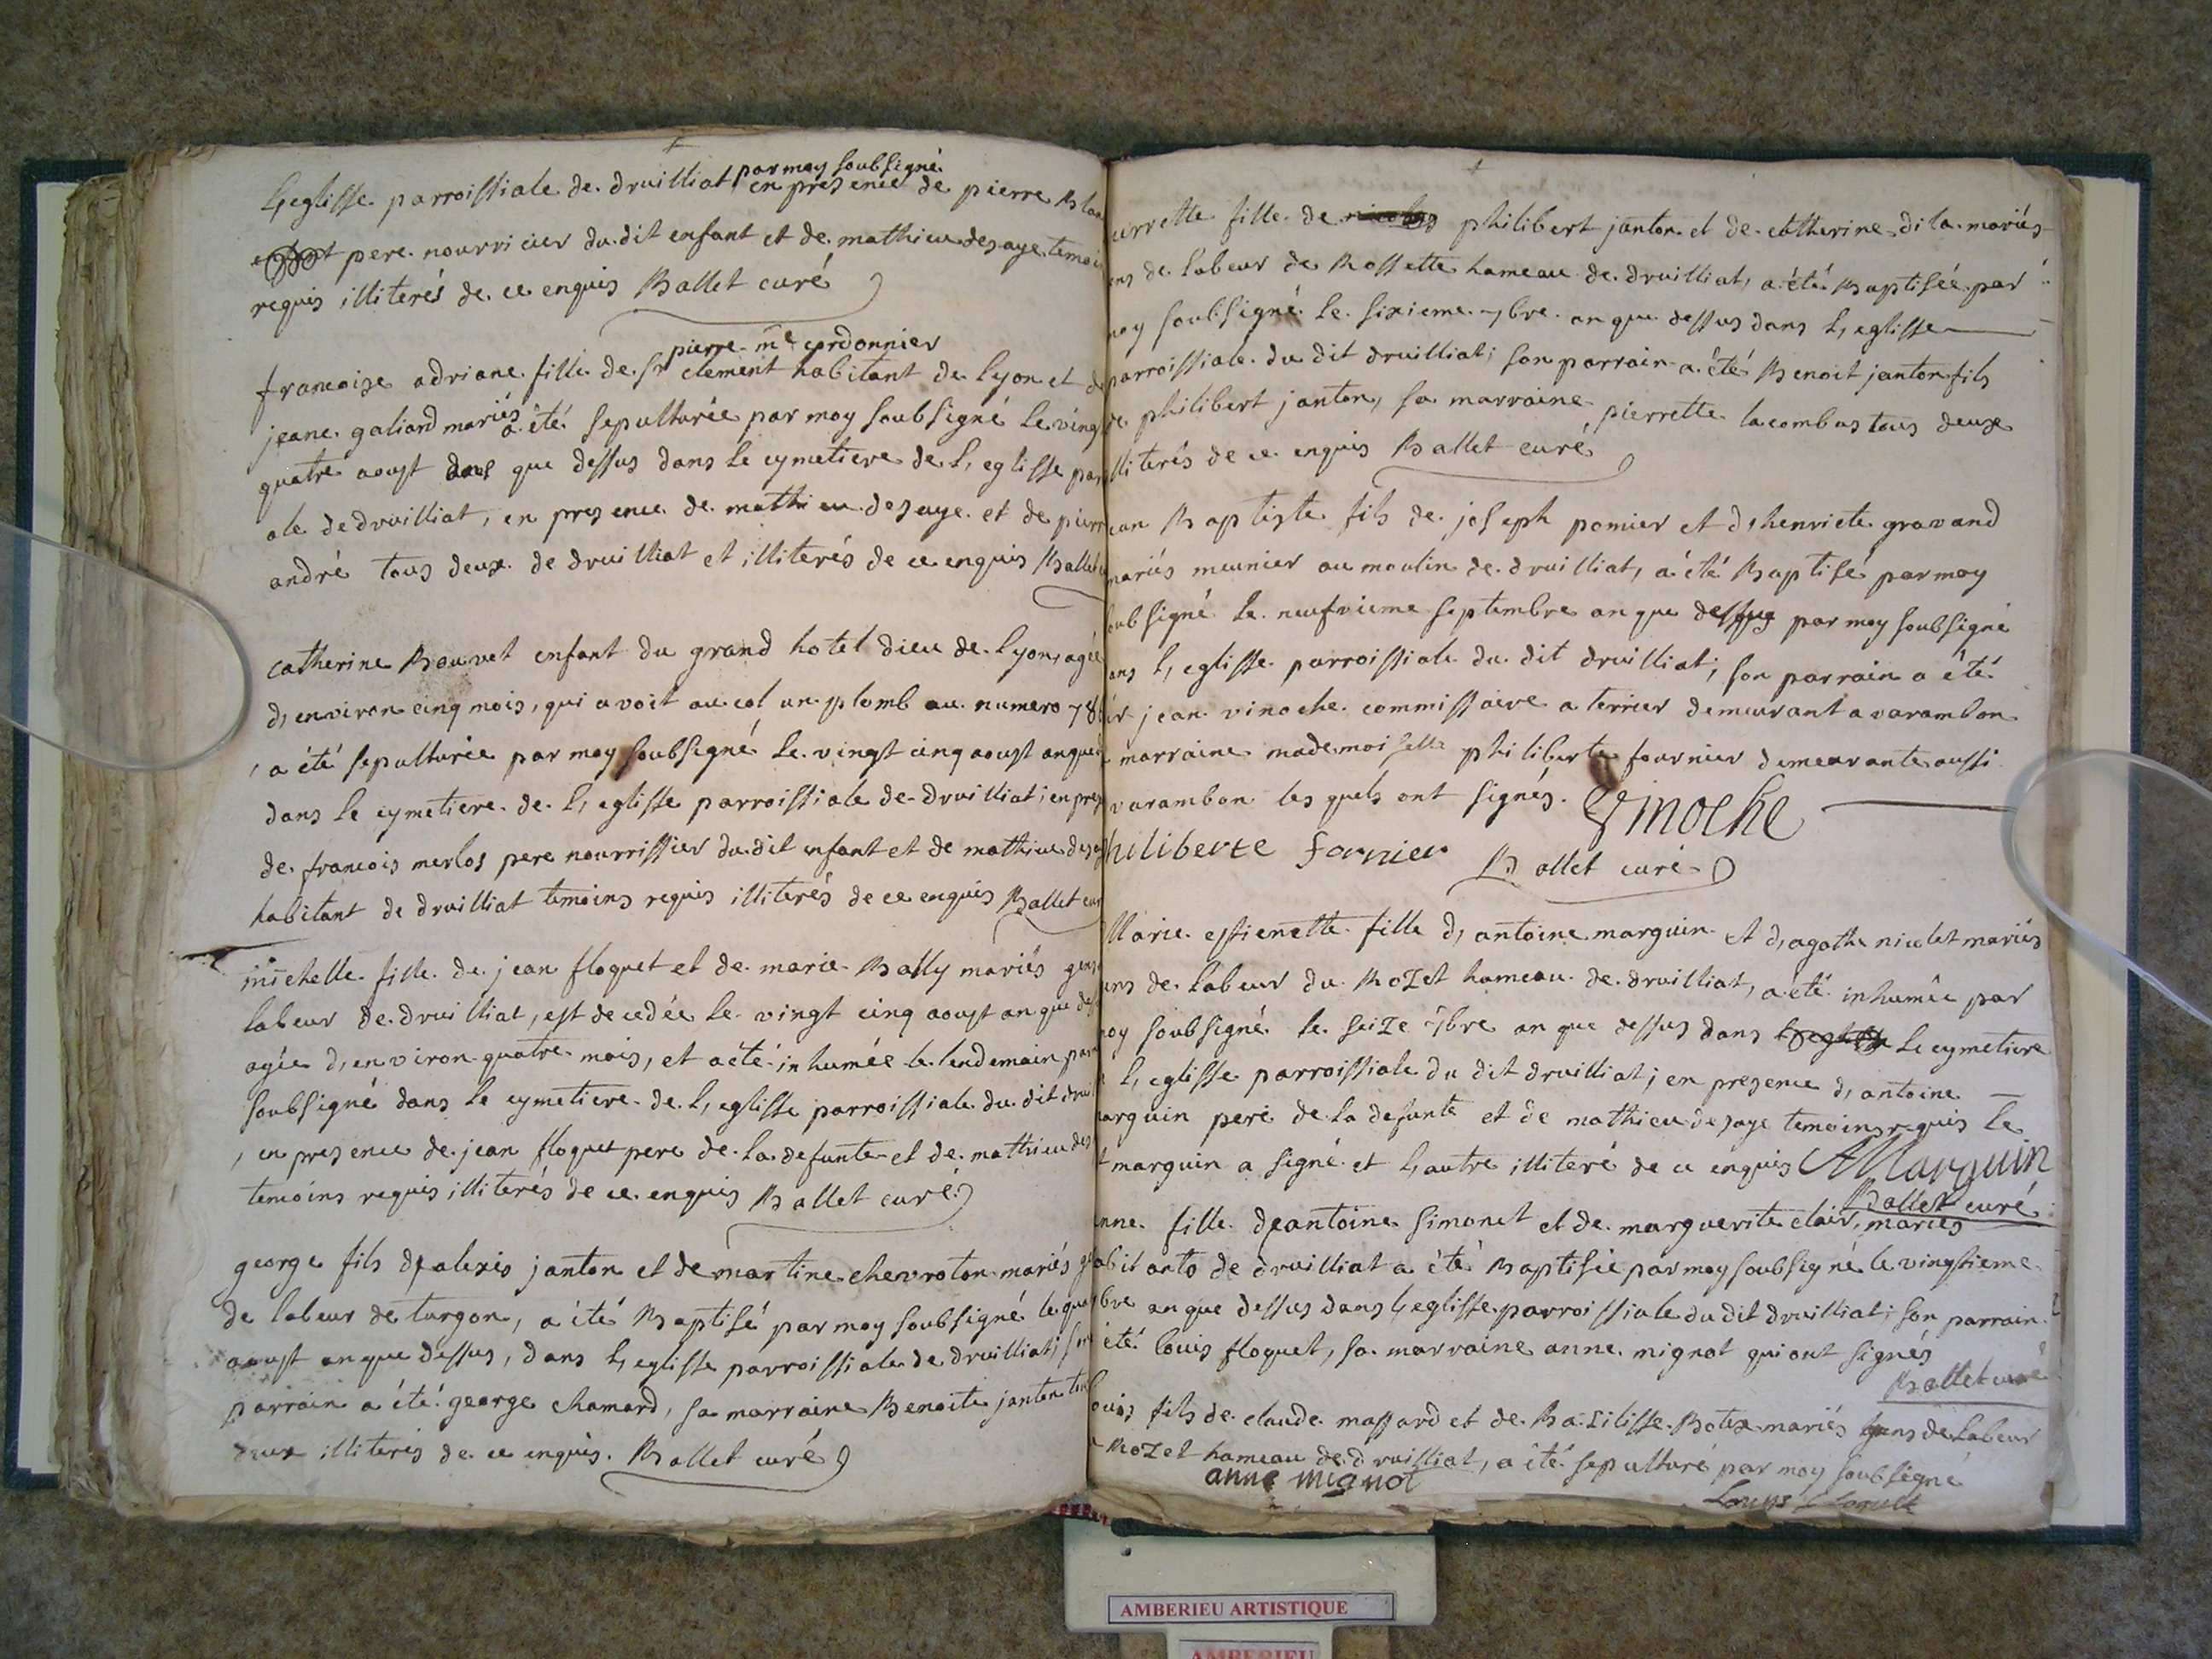 par moy soubsigné
L,eglisse parroissiale de druilliat en presence de pierre
pere nourricier du dit enfant et de mathieu desaye temoi
requis illiterés de ce enquis Ballet curé
pierre me cordonnier
francoise adriane fille de sr clement habitant de lyon et d
jeane galiard mariés a été sepulturée par moy soubsigné le ving
quatre aoust que dessus dans le cymetiere de l,eglisse par
ale de druilliat, en presence de mathieu desaye et de pierr
andré tous deux de druilliat et illiterés de ce enquis Ballet
catherine Bouvet enfant du grand hotel dieu de lyon, agée
d,environ cinq mois, qui avoit au col un plomb au numero 78
, a été sepulturée par moy soubsigné le vingt cinq aoust an que
dans le cymetiere de l,eglisse parroissiale de druilliat; en pres
de francois merlos pere nourrissier du dit enfant et de mathieu desay
habitant de druilliat temoins requis illiterés de ce enquis Ballet cur
michelle fille de jean floquet et de marie Bally mariés gens
labeur de druilliat, est decedée le vingt cinq aoust an que des
agée d,environ quatre mois, et a été inhumée le lendemain par m
soubsigné dans le cymetiere de l,eglisse parroissiale du dit drui
, en presence de jean floquet pere de la defunte et de mathieu des
temoins requis illiterés de ce enquis Ballet curé
george fils d,alexis janton et de martine chevroton mariés ge
de labeur de turgon, a été Baptisé par moy soubsigné le
aoust an que dessus, dans l,eglisse parroissiale de druilliat; son
parrain a été george chamard, sa marraine Benoite janton
deux illiterés de ce enquis. Ballet curé
errette fille de philibert janton et de catherine dila mariés
ens de labeur de Rossette hameau de druilliat, a été Baptisée par
moy soubsigné le sixieme 7bre an que dessus dans l,eglisse
parroissiale du dit druilliat; son parrain a été Benoit janton fils
de philibert janton, sa marraine pierrette lacombas tous deux
lliterés de ce enquis Ballet curé
ean Baptiste fils de joseph pomier et d,henriete gravand
mariés meunier au moulin de druilliat, a été Baptisé par moy
oubsigné le neufvieme septembre an que dessus par moy soubsigné
ans l,eglisse parroissiale du dit druilliat; son parrain a été
sr jean vinoche commissaire a terrier demeurant a varambon
marraine mademoiselle philiberte fournier demeurante aussi
varambon les quels ont signés. Vinoche
hiliberte fornier Ballet curé
Marie estienette fille d,antoine marguin et d,agathe niclet mariés
ens de labeur du Rozet hameau de druilliat, a été inhumée par
moy soubsigné le seize 7bre an que dessus dans le cymetiere
l,eglisse parroissiale du dit druilliat; en presence d,antoine
arguin pere de la defunte et de mathieu desaye temoins requis le
t marguin a signé et l,autre illiteré de ce enquis AMarguin
Ballet curé
nne fille d,antoine simonet et de marguerite clair, mariés
abitants de druilliat a été Baptisée par moy soubsigné le vingtieme
bre an que dessus dans l,eglisse parroissiale du dit druilliat; son parrain
été louis floquet, sa marraine anne mignot qui ont signés
Ballet curé
ouis fils de claude massard et de Bazilisse Botex mariés gens de labeur
Rozet hameau de druilliat, a été sepulturé par moy soubsigné
anne mignot
Louys
AMBERIEU ARTISTIQUE
AMBERIEU